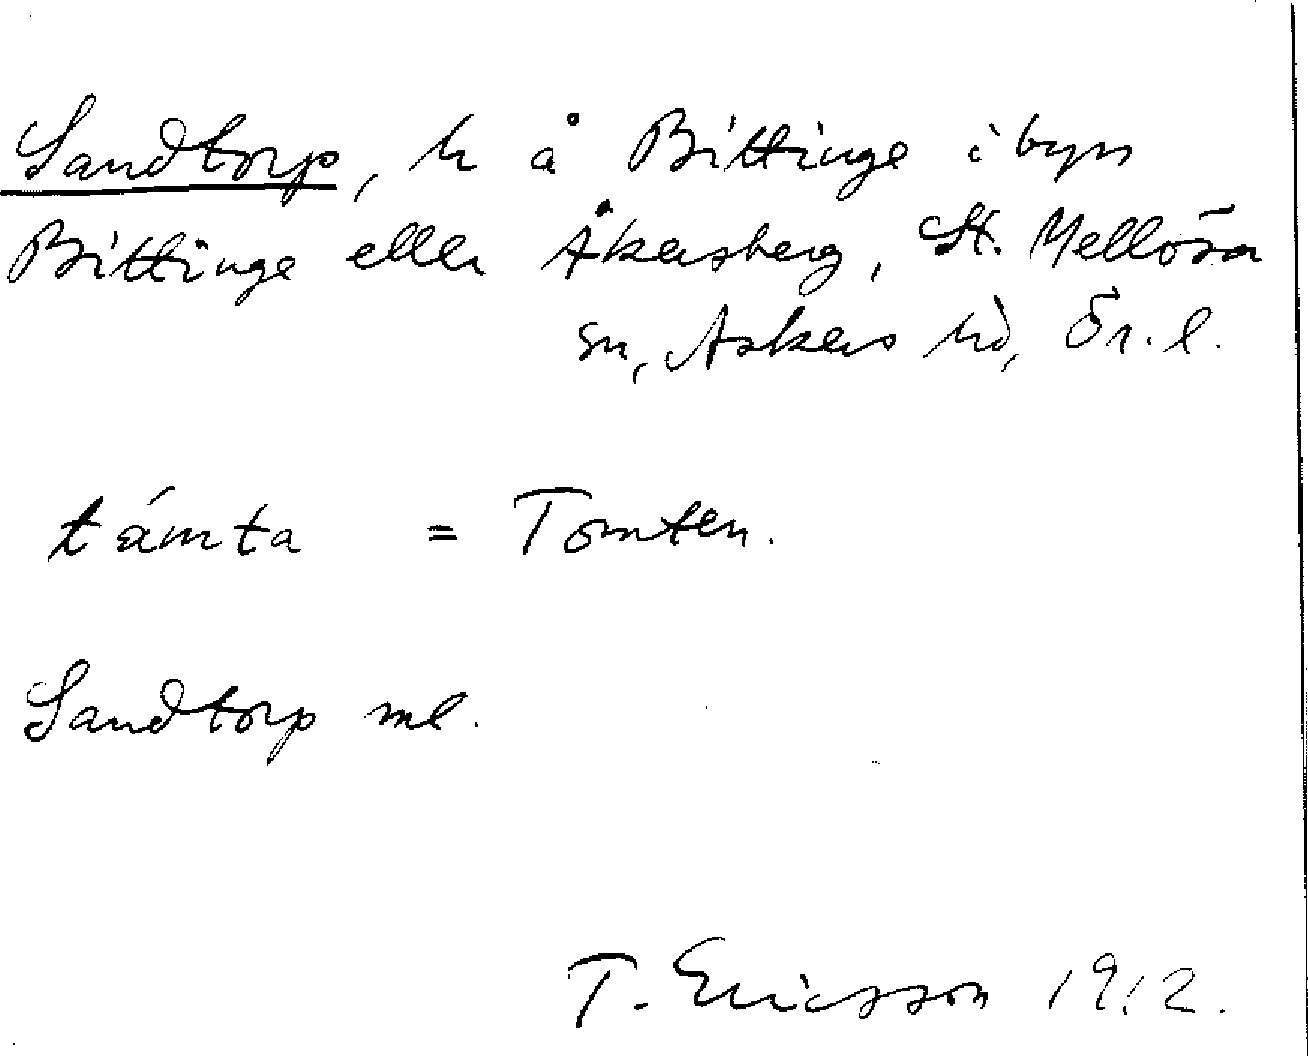 Sandtorp, h å Bittinge i byn
Bittinge eller Åkersberg, St. Mellösa
sn, Askers hd, Ör. l.
támta = Tomten.
Sandtorp ml.
T. Ericsson 1912.